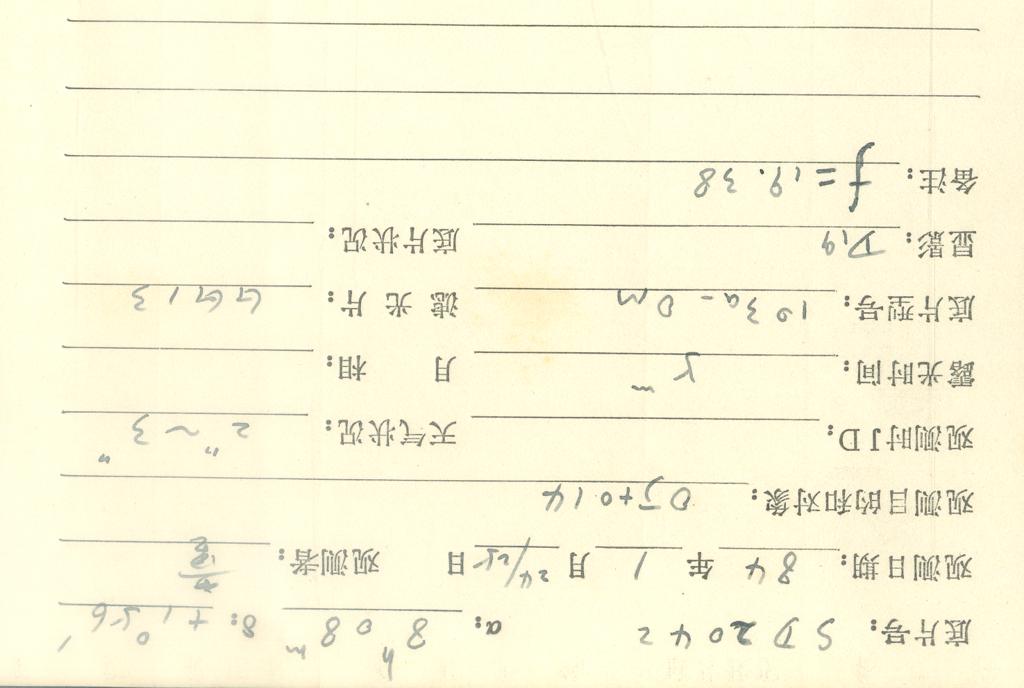 底片号: SD2042 α: 8ʰ08ᵐ δ: +1°56′
观测日期: 84年1月24/25日 观测者:
观测目的和对象: OJ+014
观测时JD: 天气状况: 2″~3″
露光时间: 5ᵐ 月 相:
底片型号: 103a-D 滤 光 片: GG13
显影: D19 底片状况:
备注: f=19.38